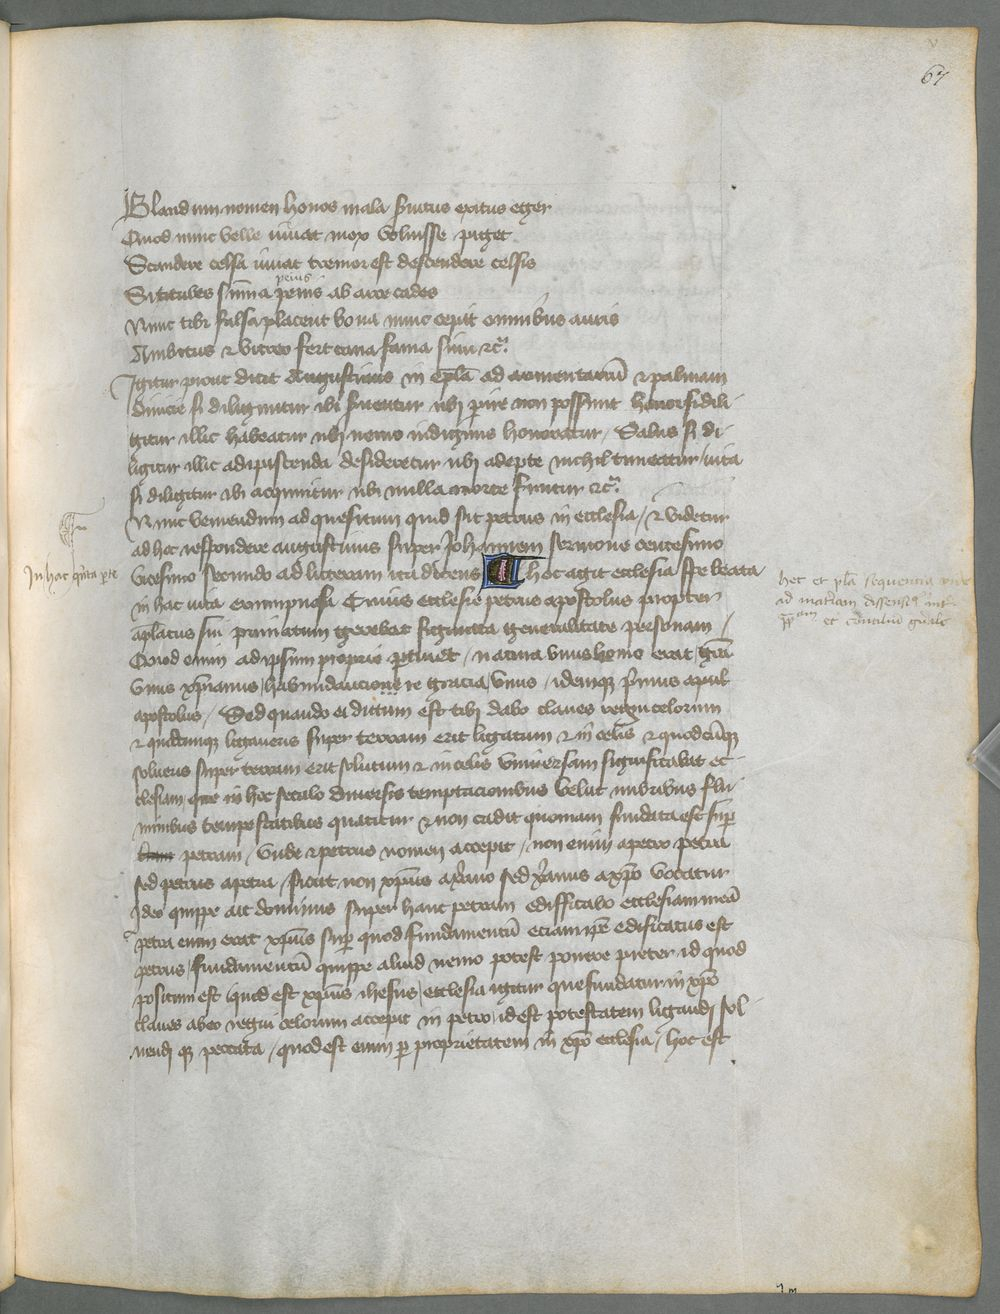 67
Blandum nomen honos mala s̄uitus exitus eger
Quod nunc velle iuuat mox voluisse piget
Scandere celsa iuuat tremor est descendere celsis
peius
Si titubes sūma peius ab arce cades
Nunc tibi falsa placent bona nunc cepit omnibus auris
Ambitus & vitreo fert fama sinu &c̄.
Igitur prout dicit Augustinus in ep̄la ad armentariū & paulinam
diuicie si diliguntur ibi s̄uentur ubi p̄ire non possunt honor si dili
gitur illic habeatur ubi nemo indignus honoratur / Salus si di
ligitur illic adipiscenda desideretur ubi adepte nichil timeatur / uita
si diligitur ibi acquiritur ubi nulla morte finitur &c̄.
Nunc veniendum ad quesitum quid sit petrus in ecclesia / & videtur
ad hoc respondere augustinus super Johannem sermone centesimo
In hac q̄nta p̄te
vicesimo secundo ad litteram ita dicens hoc agit ecclesia spe beata
hec et pl̄a sequentia
ad mat̄iam dissens9 int̄
pp̄am et cōciliū gn̄ale
in hac uita erumpnosa Cuius ecclesie petrus apostolus propter
ap̄latus sui primatum gerebat figurata generalitate personam /
Quod enim ad ipsum proprie p̄tinet / natura vnus homo erat / grā
vnus xp̄ianus / habundanciore gracia vnus / idemq3 p̄mus apud
apostolus / Sed quando ei dictum est tibi dabo claues regni celorum
& quodcumq3 ligaueris super terram erit ligatum & in celis & quodcūq3
solueris super terram erit solutum & in celis vniuersam significabat ec
clesiam que in hoc seculo diuersis temptacionibus velut imbribus flu
minibus tempestatibus quatitur & non cadit quoniam fundata est sup̄
petram / vnde & petrus nomen accepit / non enim a petro petra
sed petrus a petra / sicut non xp̄us a xp̄iano sed xp̄ianus a xp̄o vocatur
Ideo quippe ait dominus super hanc petram edifficabo ecclesiam meā
petra enim erat xp̄us sup̄ quod fundamentū eciam ip̄e edificatus est
petrus / fundamentū quippe aliud nemo potest ponere preter id quod
positum est / quod est xp̄us ihesus / ecclesia igitur que fundatur in xp̄o
claues ab eo regni celorum accepit in petro / id est potestatem ligandi sol
uendi q3 peccata / quod est enim p̄ proprietatem in xp̄o ecclesia / hoc est